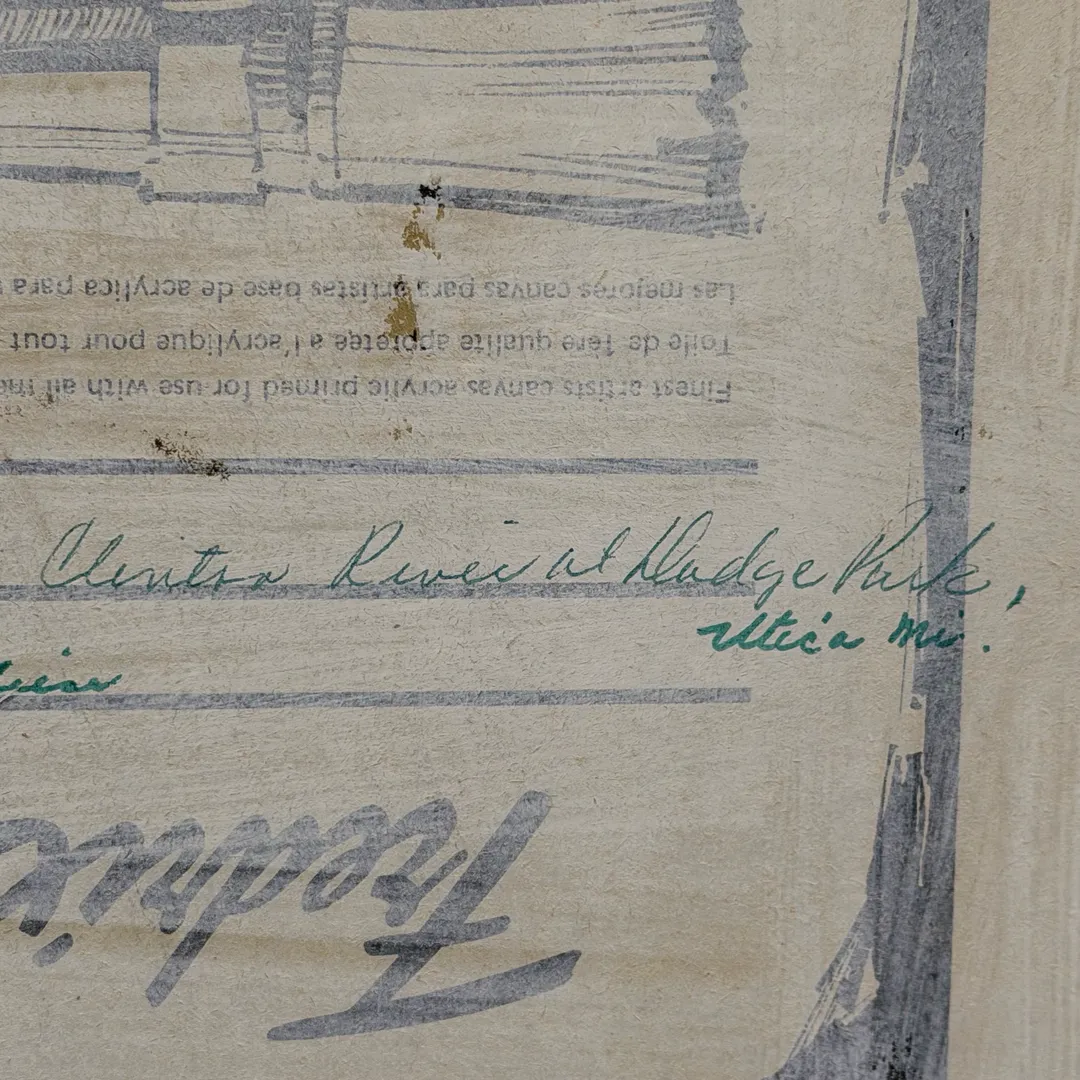 Las mejores canvas para artistas base de acrylica para
Toile de 1ère qualite appretee a l'acrylique pour tout
Finest artists canvas acrylic primed for use with all me
Clinton River at Dodge Park,
Utica Mi.
Fredrix